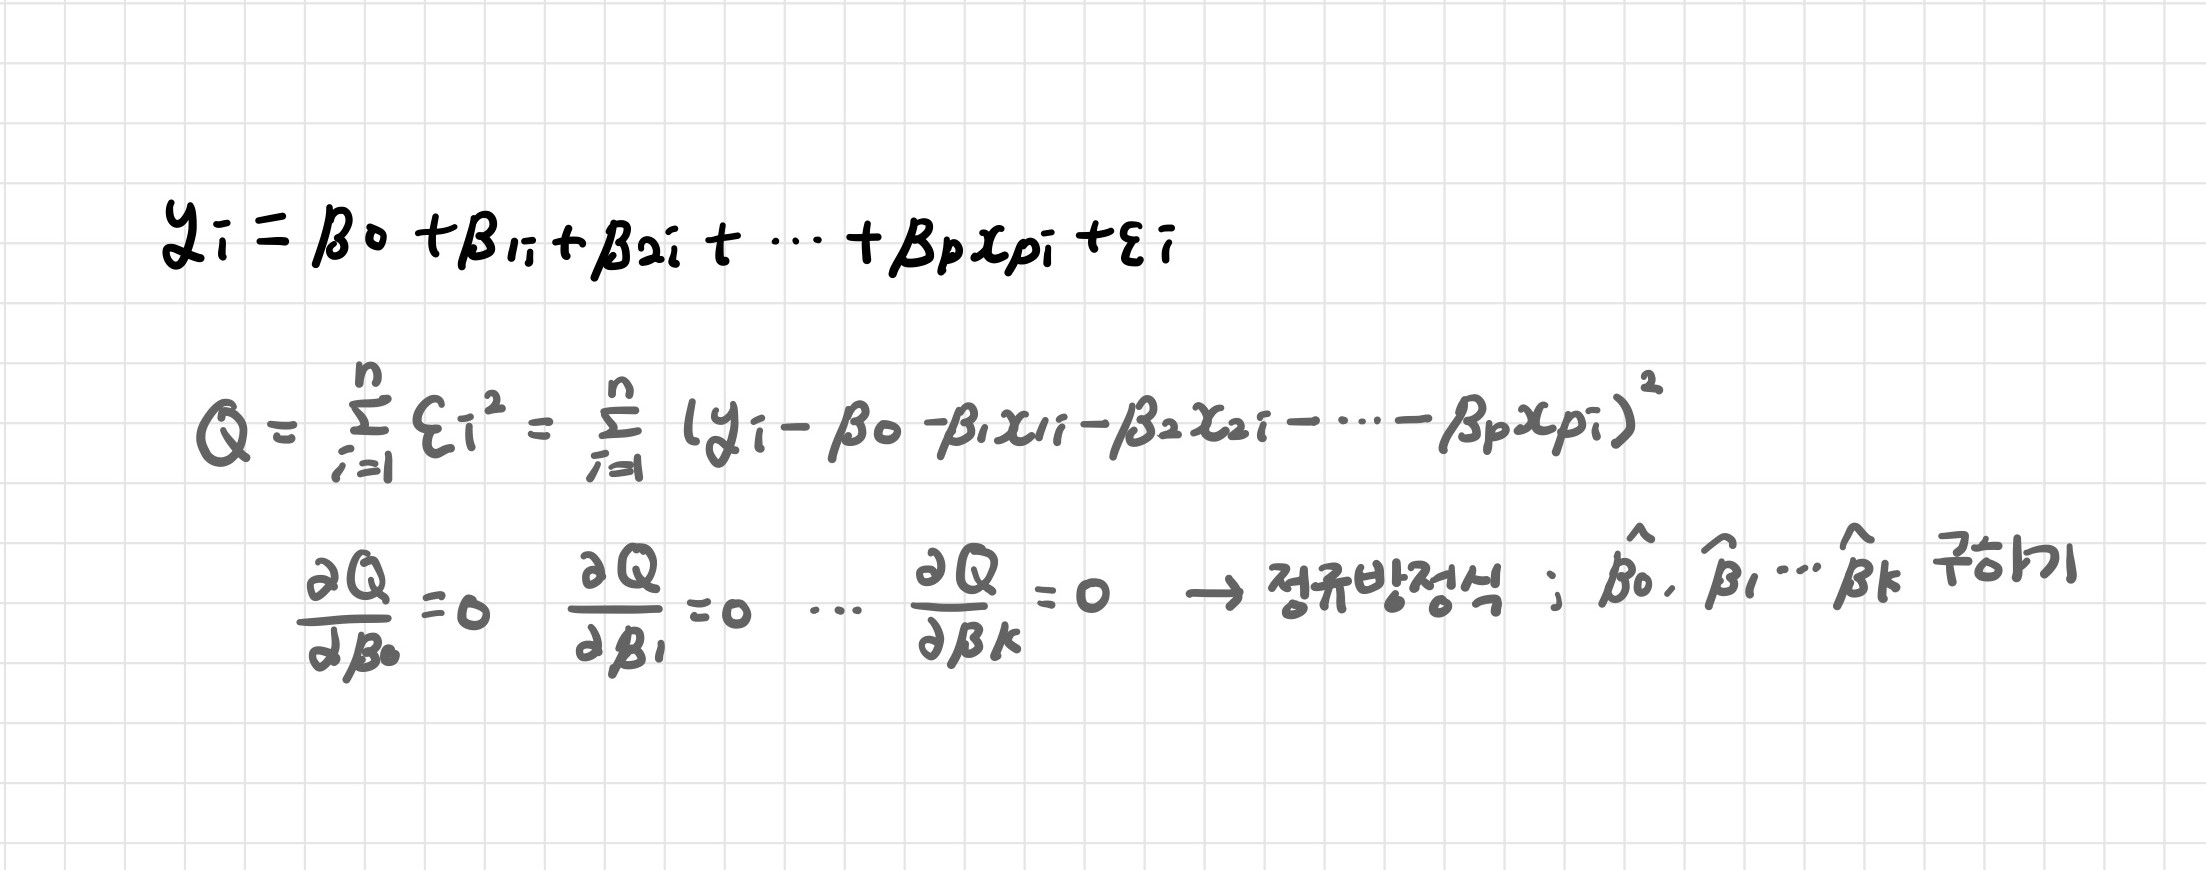 yᵢ = β₀ + β₁ᵢ + β₂ᵢ + ⋯ + βₚxₚᵢ + εᵢ
Q = Σⁿᵢ₌₁ εᵢ² = Σⁿᵢ₌₁ (yᵢ − β₀ − β₁x₁ᵢ − β₂x₂ᵢ − ⋯ − βₚxₚᵢ)²
∂Q/∂β₀ = 0 ∂Q/∂β₁ = 0 ⋯ ∂Q/∂βₖ = 0 → 정규방정식 ; β̂₀, β̂₁ ⋯ β̂ₖ 구하기